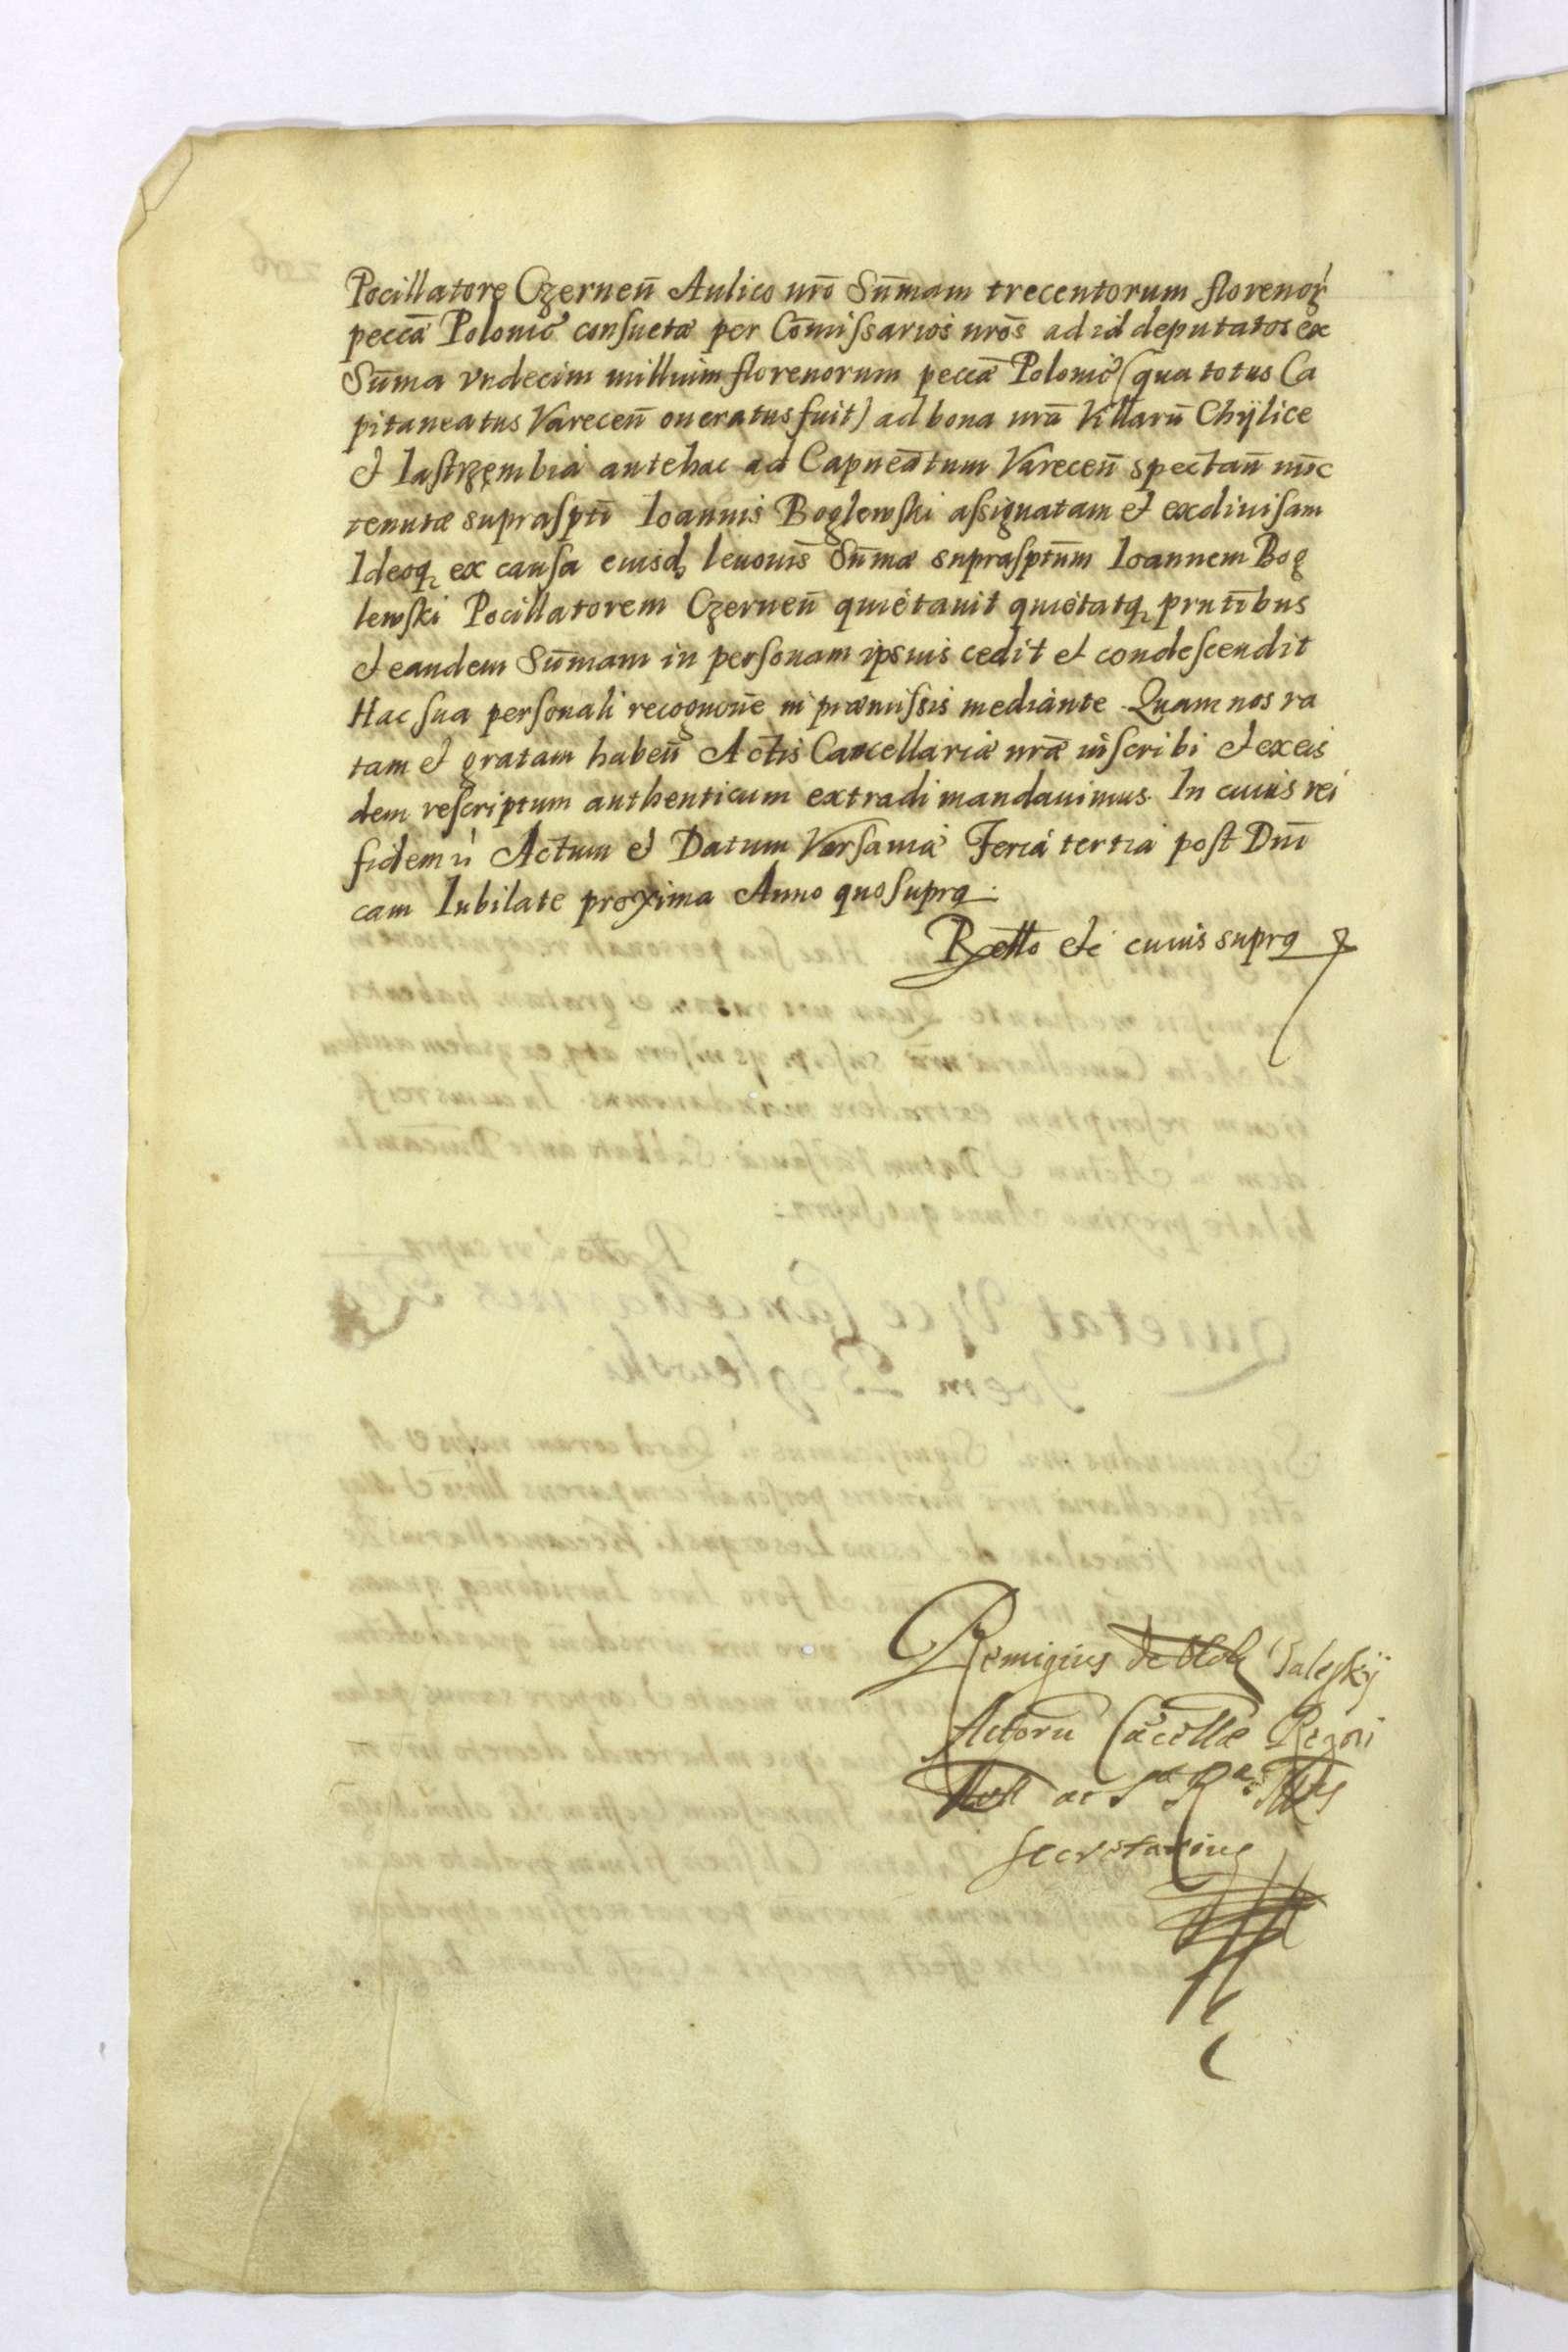 Pocillatore Czerneñ Aulico nrõ Sum̃am trecentorum florenoꝝ
peccã Polonic̃ consuetæ per Com̃issarios nrõs ad id deputatos ex
Sum̃a vndecim millium florenorum peccæ Polonic̃ (qua totus Ca
pitaneatus Vareceñ oneratus fuit) ad bona nrã Villarũ Chÿlice
et Iastrzęmbia antehac ad Capneãtum Vareceñ spectañ nũc
tenutæ supraspti̅ Ioannis Boglewski assignatam et exdiuisam
Ideoq, ex causa eiusd, leuonis̃ Sum̃æ suprasptũm Ioannem Bog
lewski Pocillatorem Czerneñ quietauit quietatq, prntĩbus
et eandem Sum̃am in personam ipsius cedit et condescendit
Hac sua personali recognoñe in præmissis mediante. Quam nos ra
tam et gratam habeñ Actis Cancellariæ nræ̃ inscribi et ex eis
dem rescriptum authenticum extradi mandauimus. In cuius rei
fidem ĩ Actum et Datum Varsauiæ Feria tertia post Dnĩ
cam Iubilate proxima Anno quo supra.
Rxetto etc̃ cuius supra
Remigius de Zaleskÿ
Actorũ Cãcellæ Regni
ac S R Mtis
secretarius